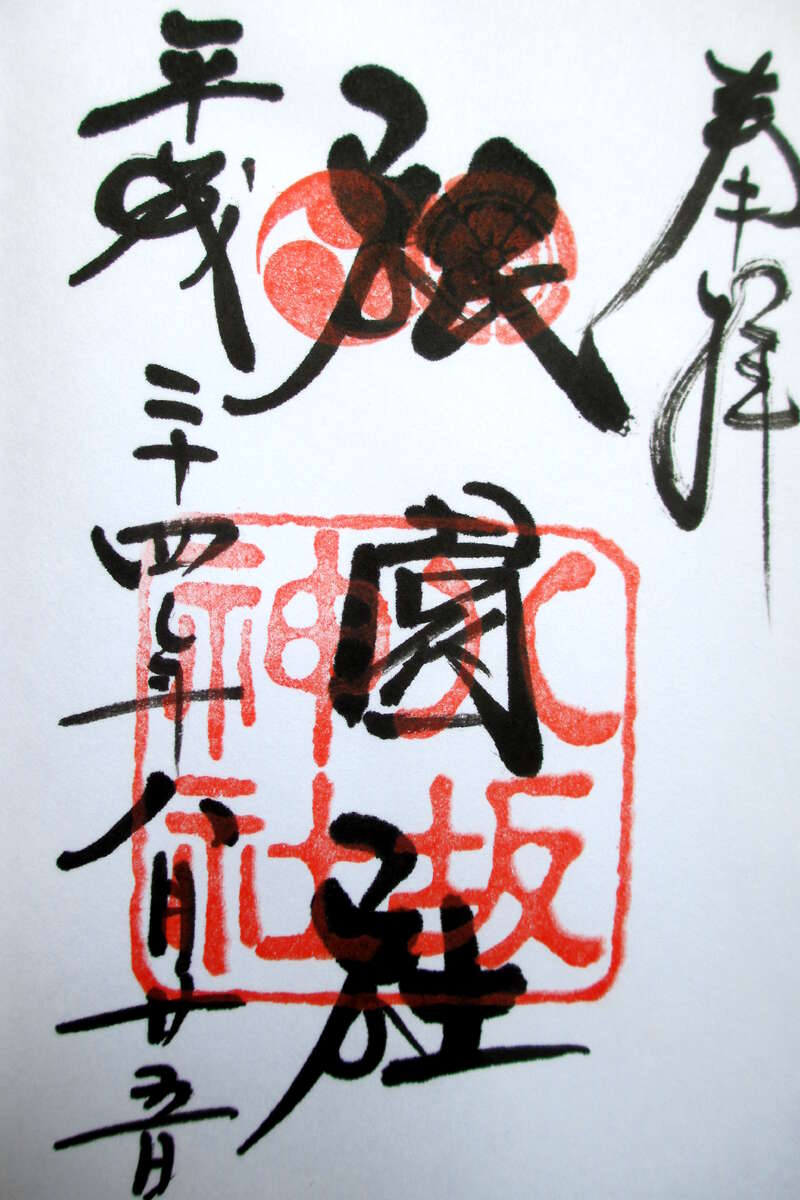 奉拝
祇園社
八坂
神社
平成二十四年八月廿五日